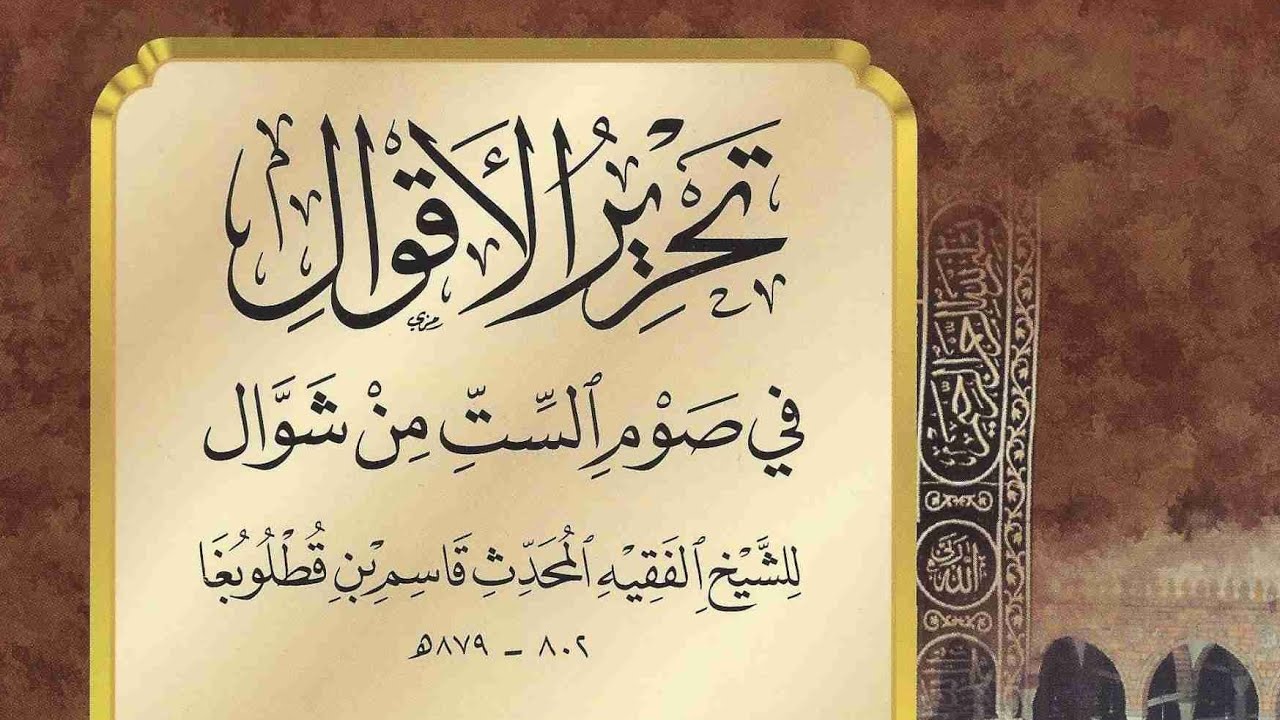 تَحْرِيرُ الأَقْوَالِ
مزي
في صَوْمِ ٱلسِّتِّ مِنْ شَوَّال
لِلشَّيْخِ ٱلفَقِيْهِ ٱلمُحَدِّثِ قَاسِمِ بْنِ قُطْلُوبُغَا
٨٠٢ - ٨٧٩هـ
الله ربي